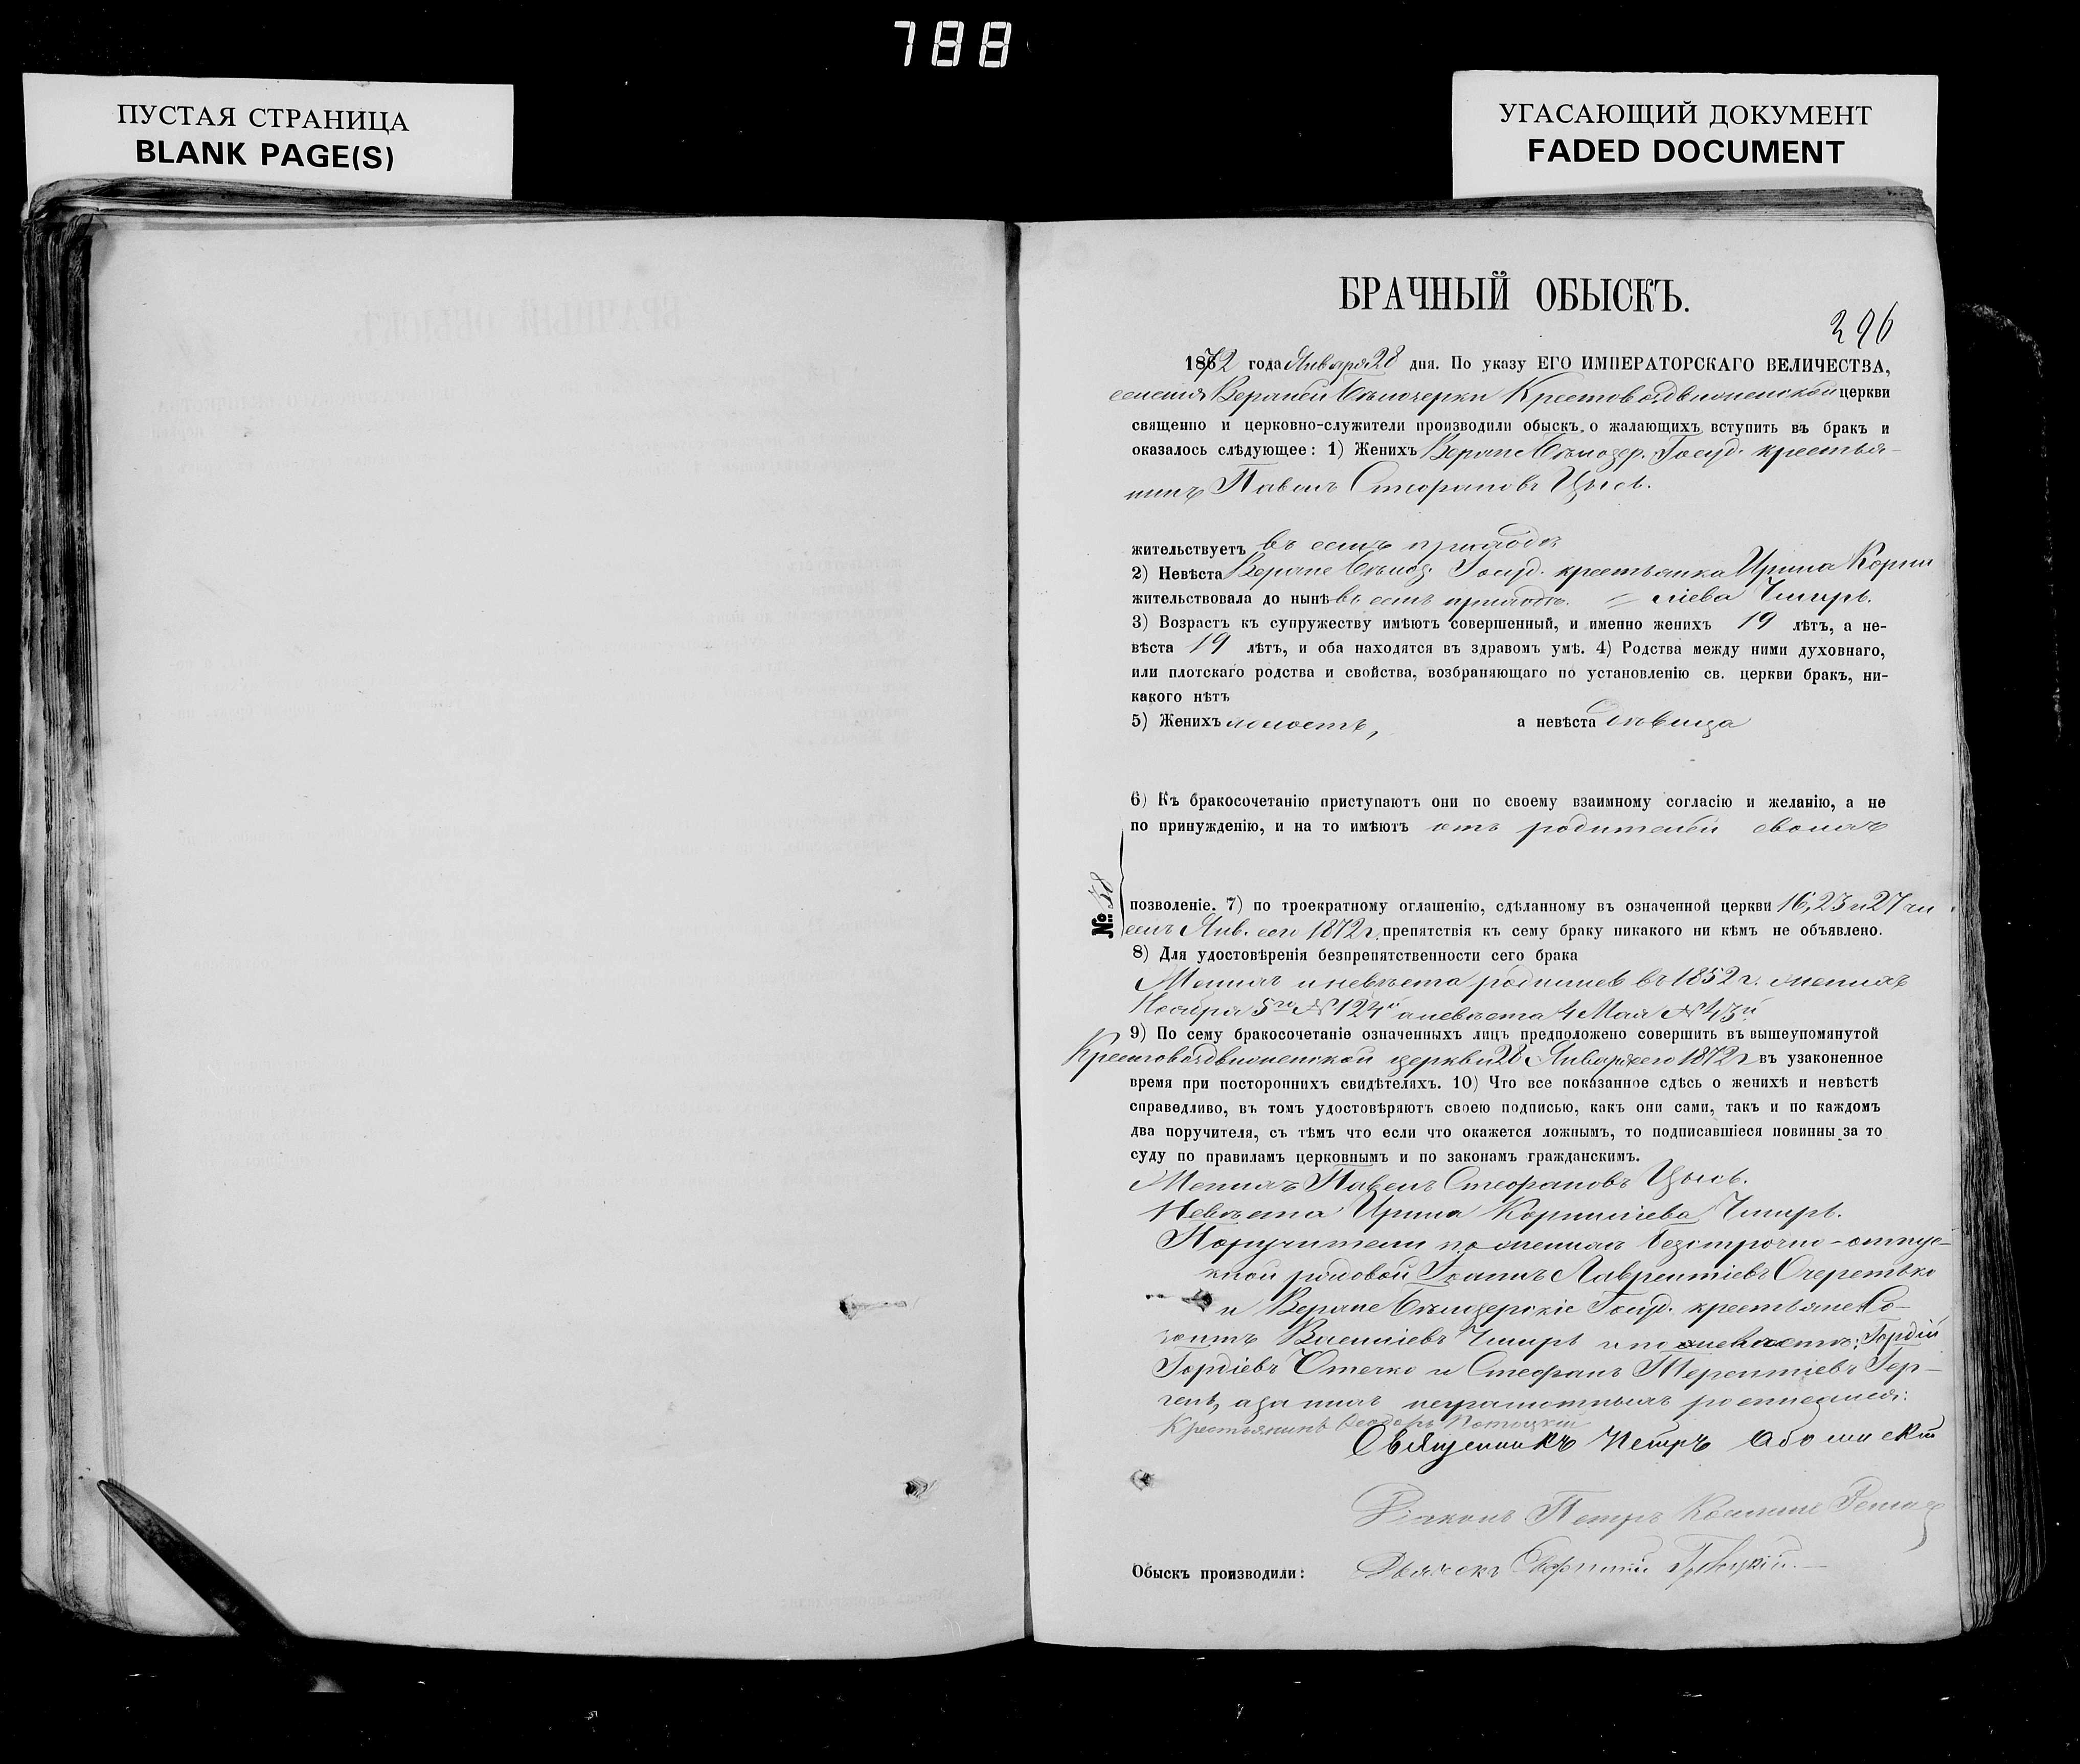 788
ПУСТАЯ СТРАНИЦА
BLANK PAGE(S)
УГАСАЮЩИЙ ДОКУМЕНТ
FADED DOCUMENT
БРАЧНЫЙ ОБЫСКЪ.
296
1872 года Января 28 дня. По указу ЕГО ИМПЕРАТОРСКАГО ВЕЛИЧЕСТВА,
селенія Верхней Бѣлозерки Крестовоздвиженской церкви
священно и церковно-служители производили обыскъ о жалающихъ вступить въ бракъ и
оказалось слѣдующее: 1) Женихъ Верхне Бѣлозер. Госуд. крестья-
нинъ Павелъ Стефановъ Цысь.
жительствуетъ въ семъ приходѣ
2) Невѣста Верхне Бѣлоз. Госуд. крестьянка Ирина Корни
жительствовала до нынѣ въ семъ приходѣ. = ліева Чмырь.
3) Возрастъ къ супружеству имѣютъ совершенный, и именно женихъ 19 лѣтъ, а не-
вѣста 19 лѣтъ, и оба находятся въ здравомъ умѣ. 4) Родства между ними духовнаго,
или плотскаго родства и свойства, возбраняющаго по установленію св. церкви бракъ, ни-
какого нѣтъ
5) Женихъ холостъ, а невѣста дѣвица
6) Къ бракосочетанію приступаютъ они по своему взаимному согласію и желанію, а не
по принужденію, и на то имѣютъ отъ родителей своихъ
№: 38
позволеніе. 7) по троекратному оглашенію, сдѣланному въ означенной церкви 16, 23 и 27 чи
слъ Янв. сего 1872 г. препятствія къ сему браку никакого ни кѣмъ не объявлено.
8) Для удостовѣренія безпрепятственности сего брака
Женихъ и невѣста родились въ 1852 г. женихъ
Ноября 5го № 124й а невѣста 4 Мая № 43й
9) По сему бракосочетаніе означенныхъ лицъ предположено совершить въ вышеупомянутой
Крестовоздвиженской церкви 28 Января сего 1872 г въ узаконенное
время при постороннихъ свидѣтеляхъ. 10) Что все показанное сдѣсь о женихѣ и невѣстѣ
справедливо, въ томъ удостовѣряютъ своею подписью, какъ они сами, такъ и по каждомъ
два поручителя, съ тѣмъ что если что окажется ложнымъ, то подписавшіеся повинны за то
суду по правиламъ церковнымъ и по законамъ гражданскимъ.
Женихъ Павелъ Стефановъ Цысь.
Невѣста Ирина Корниліева Чмырь.
Поручители по женихѣ Безсрочно-отпус-
кной рядовой Іоаннъ Лаврентіевъ Очеретько
и Верхне Бѣлозерскіе Госуд. крестьяне:
Василіевъ Чмырь и по невѣстѣ: Гордій
Гордіевъ и Стефанъ Терентіевъ Гер-
а за нихъ неграмотныхъ росписался:
Крестьянинъ Ѳеодоръ Потоцкій
Священникъ Петръ
Діаконъ Петръ
Обыскъ производили: Дьячокъ